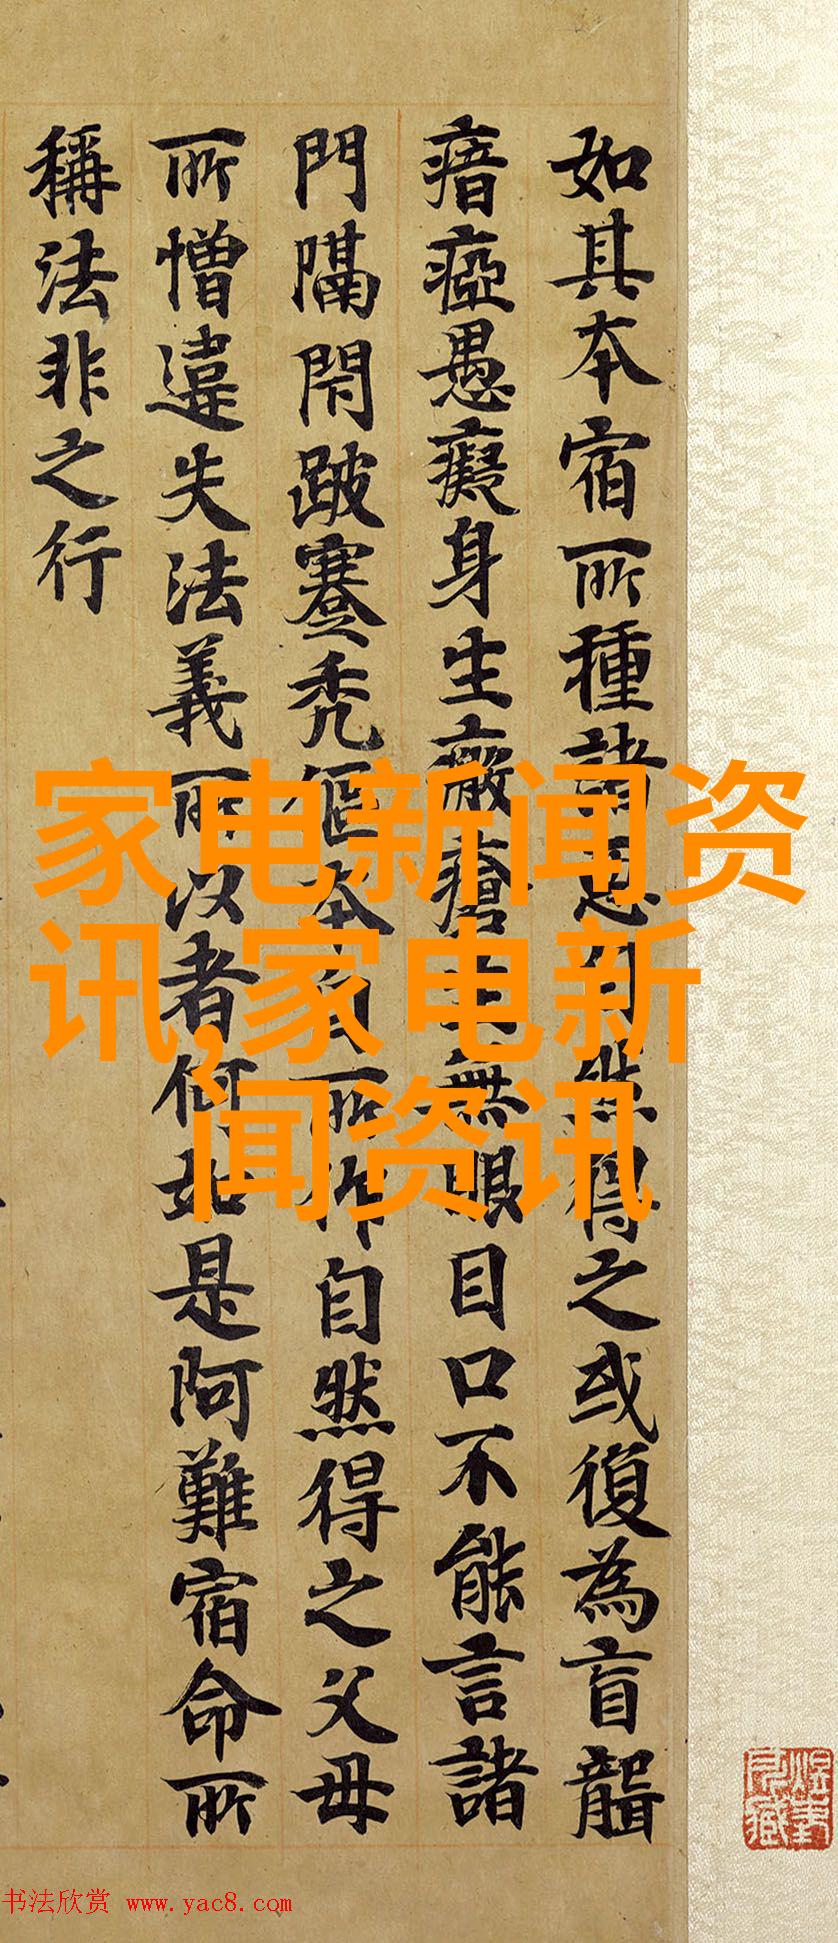 如其本宿所種諸惡自然得之或復為盲聾
瘖瘂愚癡身生瘡無眼目口不能言諸
門隔閇跛蹇禿傴本自所作自然得之父母
所憎違失法義所以者何如是阿難宿命所
稱法非之行
家电新闻资
讯,家电新
闻资讯
书法欣赏 www.yac8.com